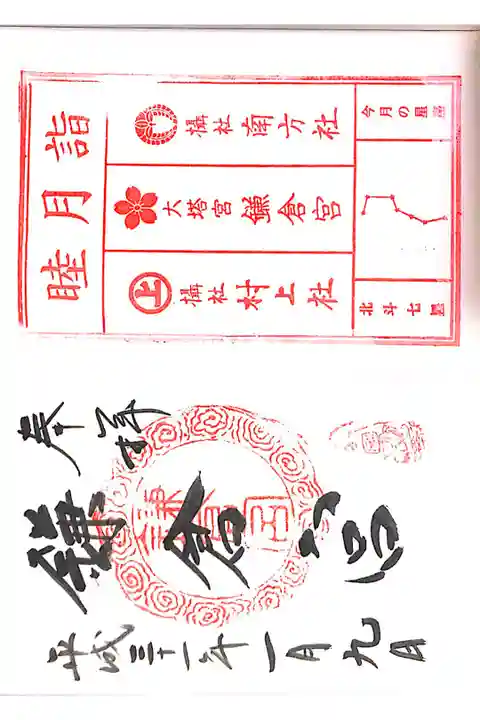 睦月詣
攝社 南方社
大塔宮 鎌倉宮
上 攝社 村上社
今月の星座
北斗七星
奉拝
鎌倉宮
鎌倉宮
平成三十一年一月九日